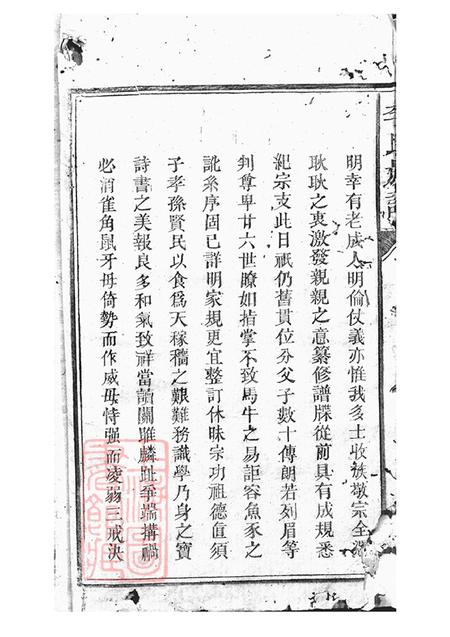 李氏族譜
明幸有老成人明倫仗義亦惟我多士收族敬宗全
耿耿之衷激發親親之意纂修譜牒從前具有成規悉
紀宗支此日祇仍舊貫位分父子數十傳朗若列眉等
判尊卑廿六世瞭如指掌不致馬牛之易詎容魚豕之
訛系序固已詳明家規更宜整訂休昧宗功祖德直須
子孝孫賢民以食爲天稼穡之艱難務識學乃身之寶
詩書之美報良多和氣致祥當讀關雎麟趾爭端搆禍
必消雀角鼠牙毋倚勢而作威毋恃强而凌弱三戒决